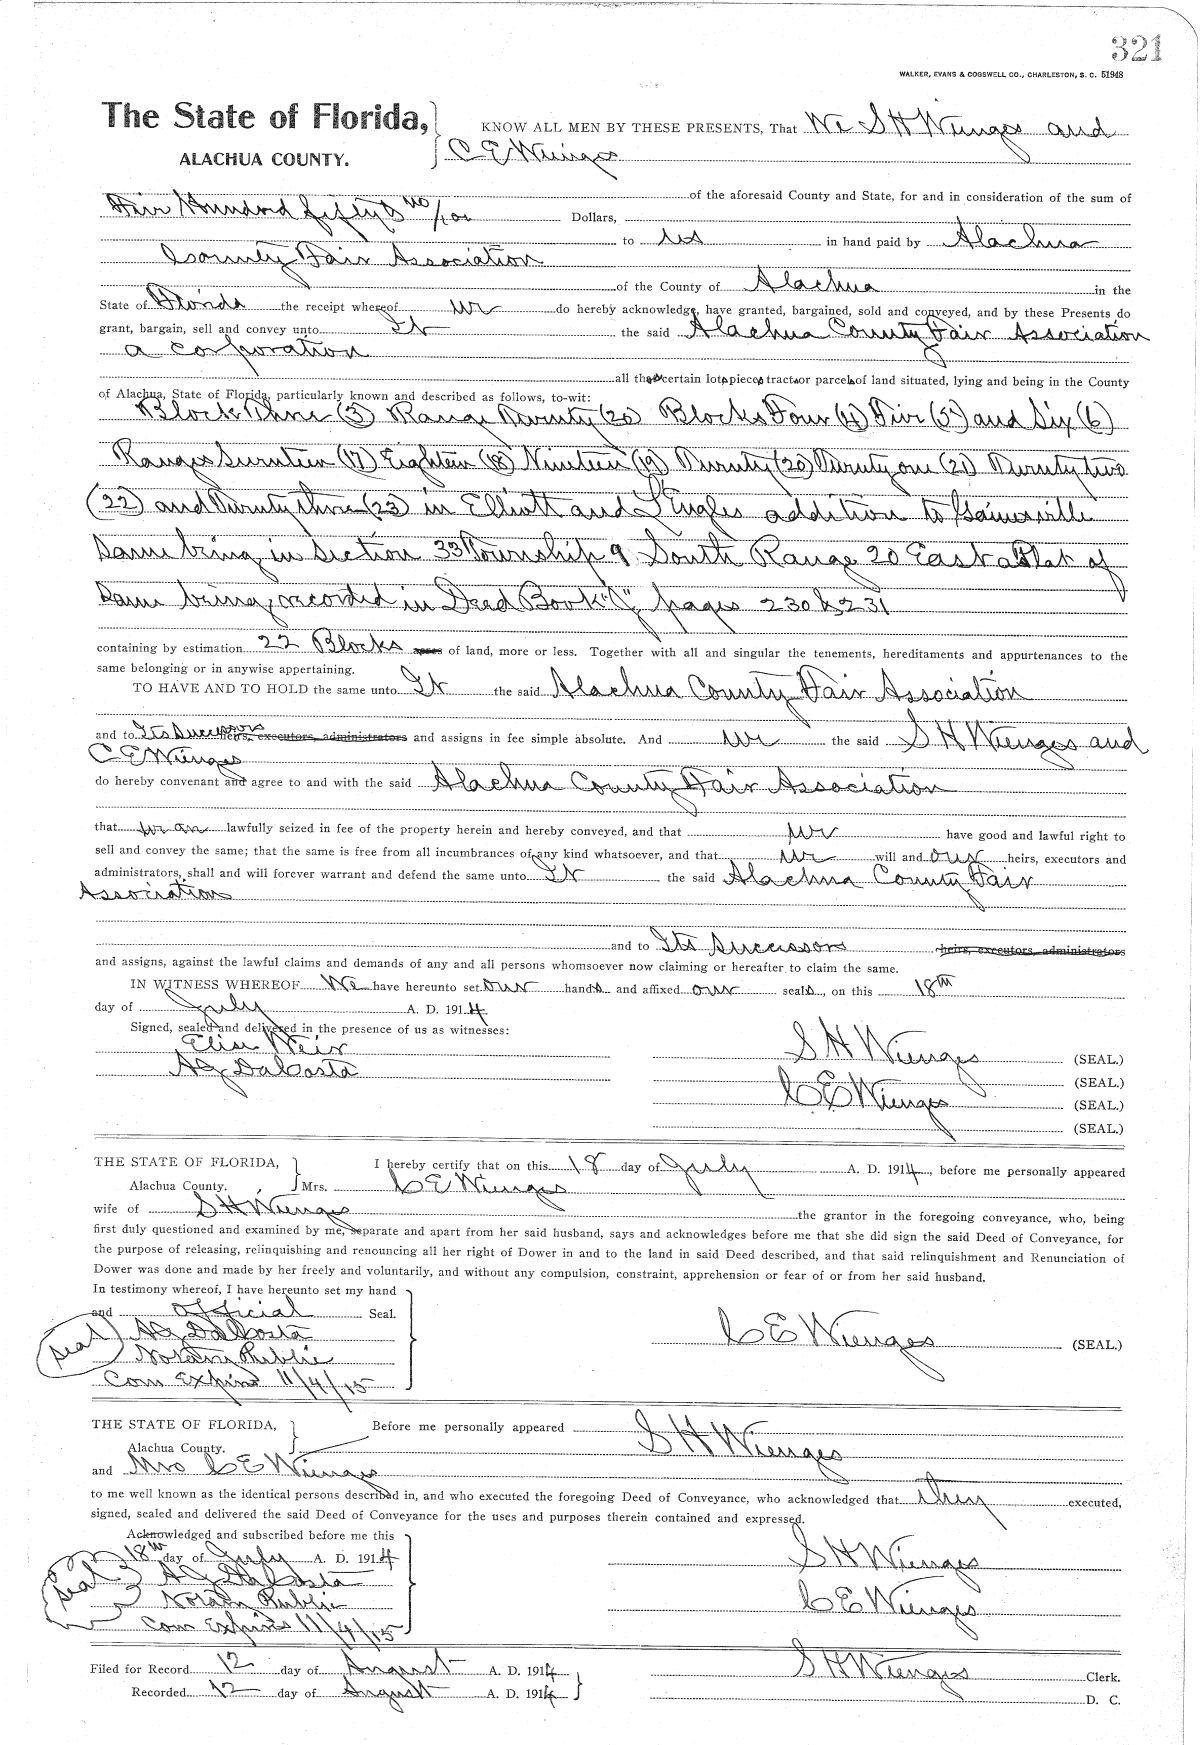 321
WALKER, EVANS & COGSWELL CO., CHARLESTON, S. C. 51948
The State of Florida,
ALACHUA COUNTY.
KNOW ALL MEN BY THESE PRESENTS, That We S H Wienges and
C E Wienges
of the aforesaid County and State, for and in consideration of the sum of
Hundred fifty & no/100 Dollars,
to us in hand paid by Alachua
County Fair Association
of the County of Alachua in the
State of Florida the receipt whereof we do hereby acknowledge, have granted, bargained, sold and conveyed, and by these Presents do
grant, bargain, sell and convey unto It the said Alachua County Fair Association
a corporation
all those certain lots, pieces, tracts or parcels of land situated, lying and being in the County
of Alachua, State of Florida, particularly known and described as follows, to-wit:
Block Three (3) Range Twenty (20 Blocks Four (4) Five (5) and Six (6)
Ranges Seventeen (17) Eighteen (18) Nineteen (19) Twenty (20) Twenty one (21) Twenty two
(22) and Twenty three (23) in Elliott and L'Engles addition to Gainesville
Same being in Section 33 Township 9 South Range 20 East a Plat of
Same being recorded in Deed Book "J" pages 230 & 231
containing by estimation 22 Blocks acres of land, more or less. Together with all and singular the tenements, hereditaments and appurtenances to the
same belonging or in anywise appertaining.
TO HAVE AND TO HOLD the same unto It the said Alachua County Fair Association
and to Its Successors heirs, executors, administrators and assigns in fee simple absolute. And we the said S H Wienges and
C E Wienges
do hereby convenant and agree to and with the said Alachua County Fair Association
that we are lawfully seized in fee of the property herein and hereby conveyed, and that we have good and lawful right to
sell and convey the same; that the same is free from all incumbrances of any kind whatsoever, and that we will and our heirs, executors and
administrators, shall and will forever warrant and defend the same unto It the said Alachua County Fair
Association
and to Its Successors heirs, executors, administrators
and assigns, against the lawful claims and demands of any and all persons whomsoever now claiming or hereafter to claim the same.
IN WITNESS WHEREOF We have hereunto set our hands and affixed our seals, on this 18th
day of July A. D. 1914
Signed, sealed and delivered in the presence of us as witnesses:
Elise Weir
A G DaCosta
S H Wienges (SEAL.)
(SEAL.)
C E Wienges (SEAL.)
(SEAL.)
THE STATE OF FLORIDA,
Alachua County.
I hereby certify that on this 18 day of July A. D. 1914, before me personally appeared
Mrs. C E Wienges
wife of S H Wienges the grantor in the foregoing conveyance, who, being
first duly questioned and examined by me, separate and apart from her said husband, says and acknowledges before me that she did sign the said Deed of Conveyance, for
the purpose of releasing, relinquishing and renouncing all her right of Dower in and to the land in said Deed described, and that said relinquishment and Renunciation of
Dower was done and made by her freely and voluntarily, and without any compulsion, constraint, apprehension or fear of or from her said husband.
In testimony whereof, I have hereunto set my hand
and official Seal.
seal A G DaCosta
Notary Public
Com Expires 11/4/15
C E Wienges (SEAL.)
THE STATE OF FLORIDA,
Alachua County.
Before me personally appeared S H Wienges
and Mrs C E Wienges
to me well known as the identical persons described in, and who executed the foregoing Deed of Conveyance, who acknowledged that they executed,
signed, sealed and delivered the said Deed of Conveyance for the uses and purposes therein contained and expressed.
Acknowledged and subscribed before me this
18th day of July A. D. 1914
seal A G DaCosta
Notary Public
Com Expires 11/4/15
S H Wienges
C E Wienges
Filed for Record 12 day of August A. D. 1914
Recorded 12 day of August A. D. 1914
S H Wienges Clerk.
D. C.